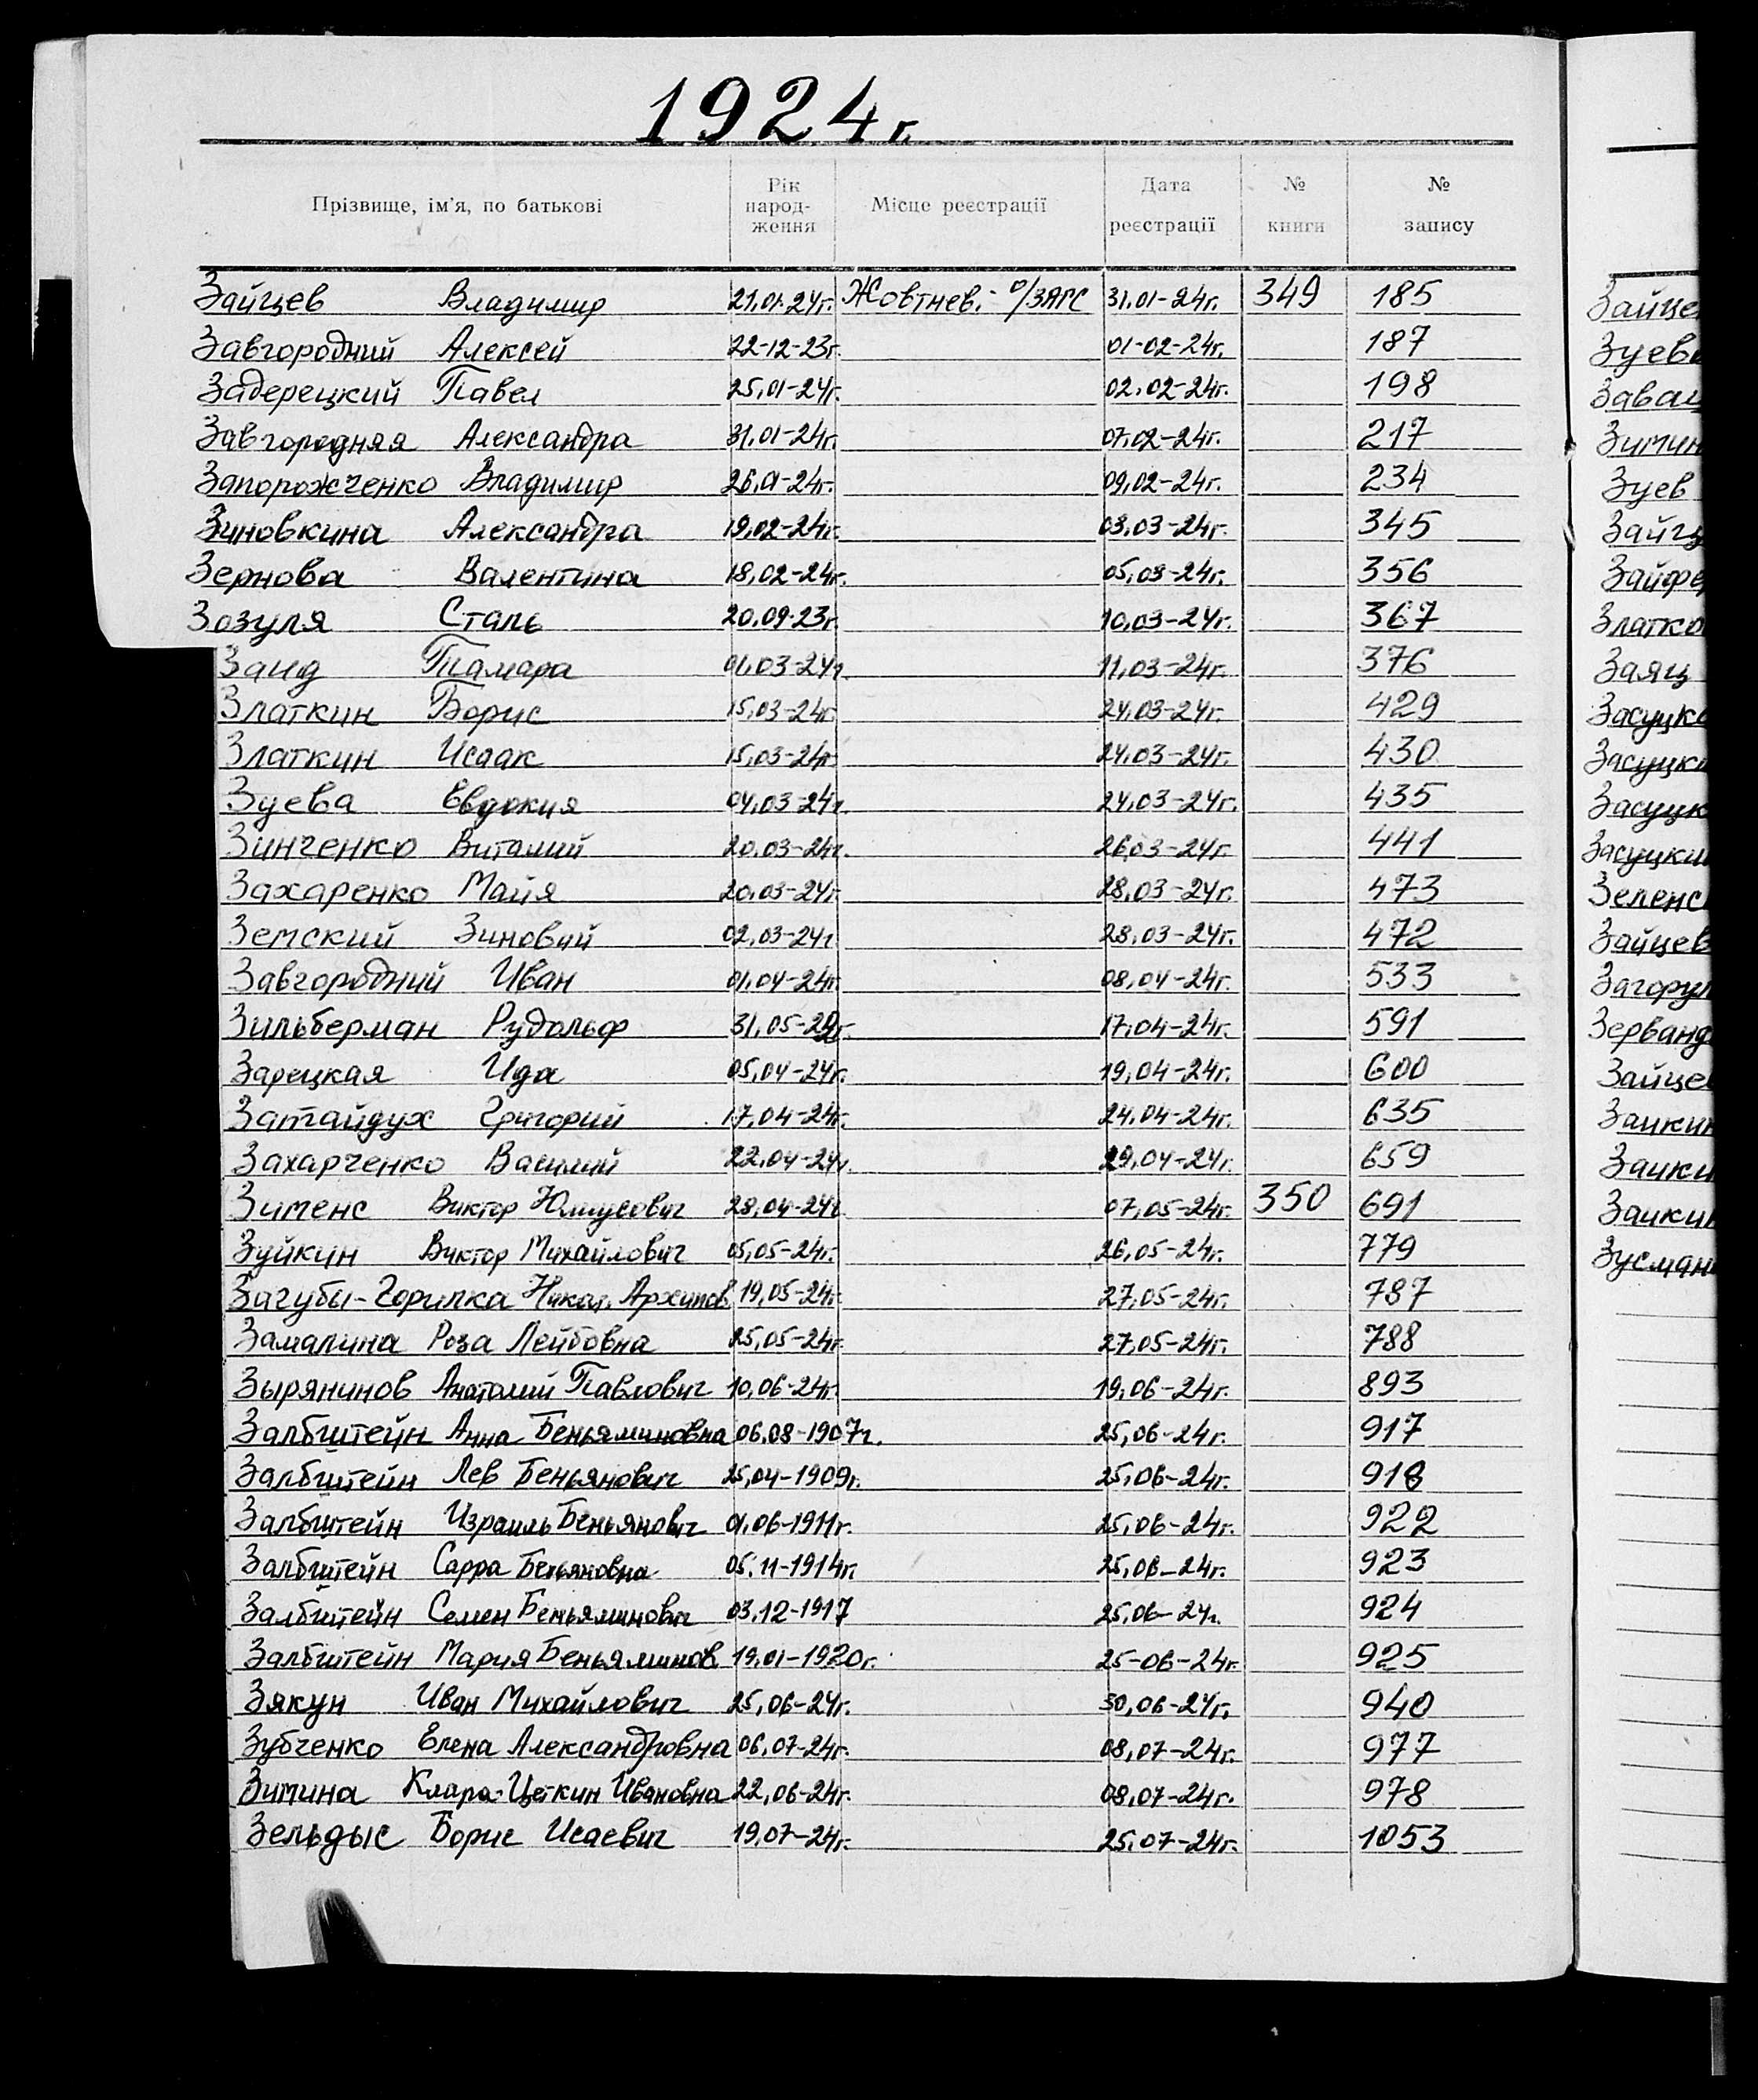 1924г.
Прізвище, ім'я, по батькові Рік народ-ження Місце реєстрації Дата реєстрації № книги № запису
Зайцев Владимир 21.01.24г. Жовтнев. о/ЗАГС 31.01-24г. 349 185
Завгородний Алексей 22-12-23г. 01-02-24г. 187
Задерецкий Павел 25.01-24г. 02.02-24г. 198
Завгородняя Александра 31.01-24г. 07.02-24г. 217
Запорожченко Владимир 26.01-24г. 09.02-24г. 234
Зиновкина Александра 19.02-24г. 03.03-24г. 345
Зернова Валентина 18.02-24г. 05.03-24г. 356
Зозуля Сталь 20.09.23г. 10.03-24г. 367
Заид Тамара 01.03-24г. 11.03-24г. 376
Златкин Борис 15.03-24г. 24.03-24г. 429
Златкин Исаак 15.03-24г. 24.03-24г. 430
Зуева Евдокия 04.03-24г. 24.03-24г. 435
Зинченко Виталий 20.03-24г. 26.03-24г. 441
Захаренко Майя 20.03-24г. 28.03-24г. 473
Земский Зиновий 02.03-24г. 28.03-24г. 472
Завгородний Иван 01.04-24г. 08.04-24г. 533
Зильберман Рудольф 17.04-24г. 591
Зарецкая Ида 05.04-24г. 19.04-24г. 600
Затайдух Григорий 17.04-24г. 24.04-24г. 635
Захарченко Василий 22.04-24г. 29.04-24г. 659
Зименс Виктор Юлиусович 28.04-24г. 07.05-24г. 350 691
Зуйкин Виктор Михайлович 05.05-24г. 26.05-24г. 779
Загубы-Горилка Никол. Архипов. 19.05-24г. 27.05-24г. 787
Замалина Роза Лейбовна 25.05-24г. 27.05-24г. 788
Зырянинов Анатолий Павлович 10.06-24г. 19.06-24г. 893
Залбштейн Анна Беньяминовна 06.08-1907г. 25.06-24г. 917
Залбштейн Лев Беньянович 25.04-1909г. 25.06-24г. 918
Залбштейн Израиль Беньянович 01.06-1911г. 25.06-24г. 922
Залбштейн Сарра Беньяновна 05.11-1914г. 25.06-24г. 923
Залбштейн Семен Беньяминович 03.12-1917 25.06-24г. 924
Залбштейн Мария Беньяминов. 19.01-1920г. 25-06-24г. 925
Зякун Иван Михайлович 25.06-24г. 30.06-24г. 940
Зубченко Елена Александровна 06.07-24г. 08.07-24г. 977
Зимина Клара-Цеткин Ивановна 22.06-24г. 08.07-24г. 978
Зельдыс Борис Исаевич 19.07-24г. 25.07-24г. 1053
Зайце
Зуев
Зимин
Зуев
Зайц
Зайфе
Златко
Заяц
Засуцк
Засуцк
Засуцк
Засуцки
Зеленс
Зайцев
Загорул
Зерванд
Зайце
Заики
Заики
Заики
Зусман